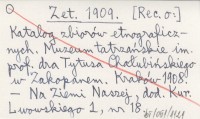 Zet. 1909. [Rec. o:]
Katalog zbiorów etnograficz-
nych. Muzeum tatrzańskie im.
prof. dra Tytusa Chałubińskiego
w Zakopanem. Kraków 1908.
— Na Ziemi Naszej, dod. Kur.
Lwowskiego 1, nr 18